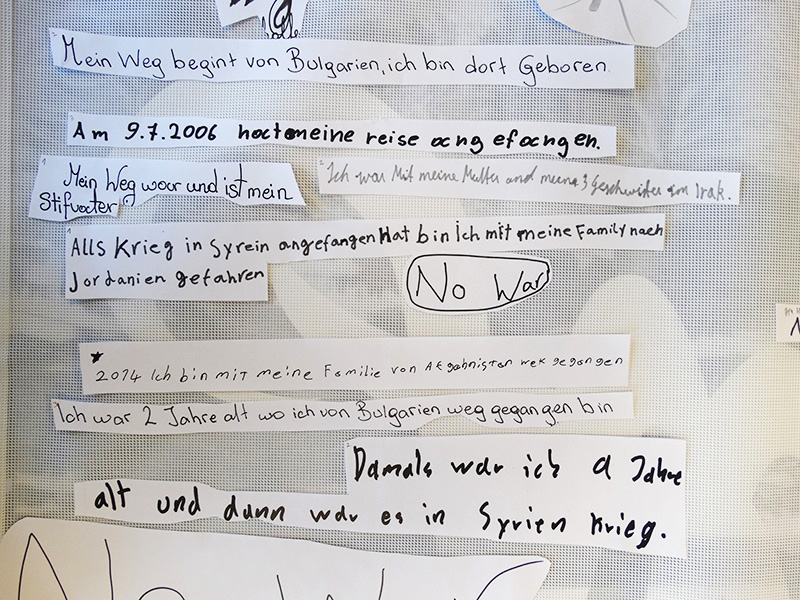 Mein Weg begint von Bulgarien, ich bin dort Geboren.
Am 9.7.2006 hat meine reise angefangen.
Mein Weg war und ist mein
Stifvater
Ich war Mit meine Mutter und meine 3 Geschwister am Irak.
Alls Krieg in Syrein angefangen Hat bin Ich mit meine Family nach
Jordanien gefahren
No War
2014 Ich bin mit meine Familie von Afgahnistan wek gegangen
Ich war 2 Jahre alt wo ich von Bulgarien weg gegangen bin
Damals war ich 9 Jahre
alt und dann war es in Syrien Krieg.
No War